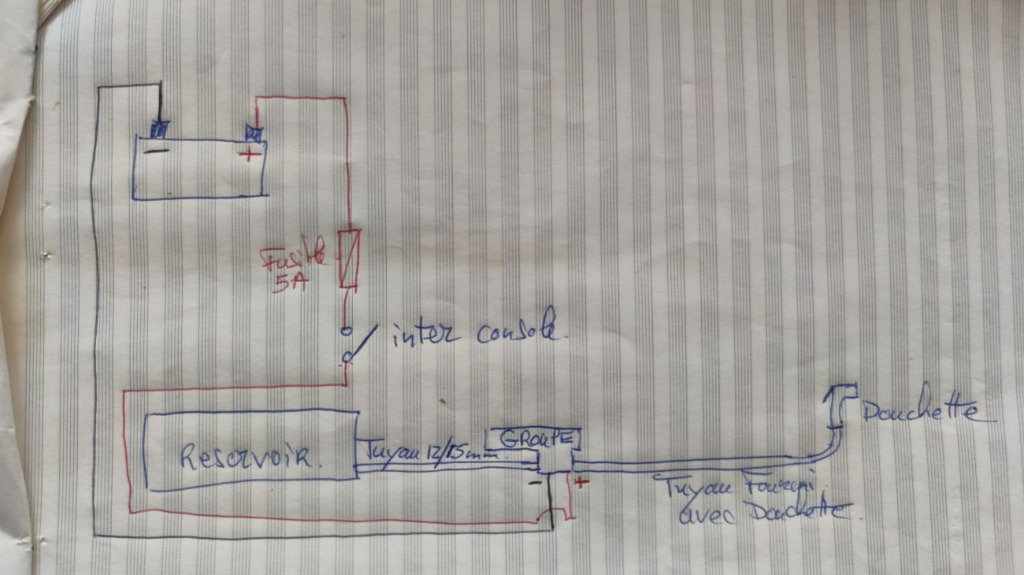 − +
Fusible
5A
inter console.
Douchette
Reservoir.
Tuyau 12/15mm.
GROUPE
− +
Tuyau Fourni
avec Douchette.